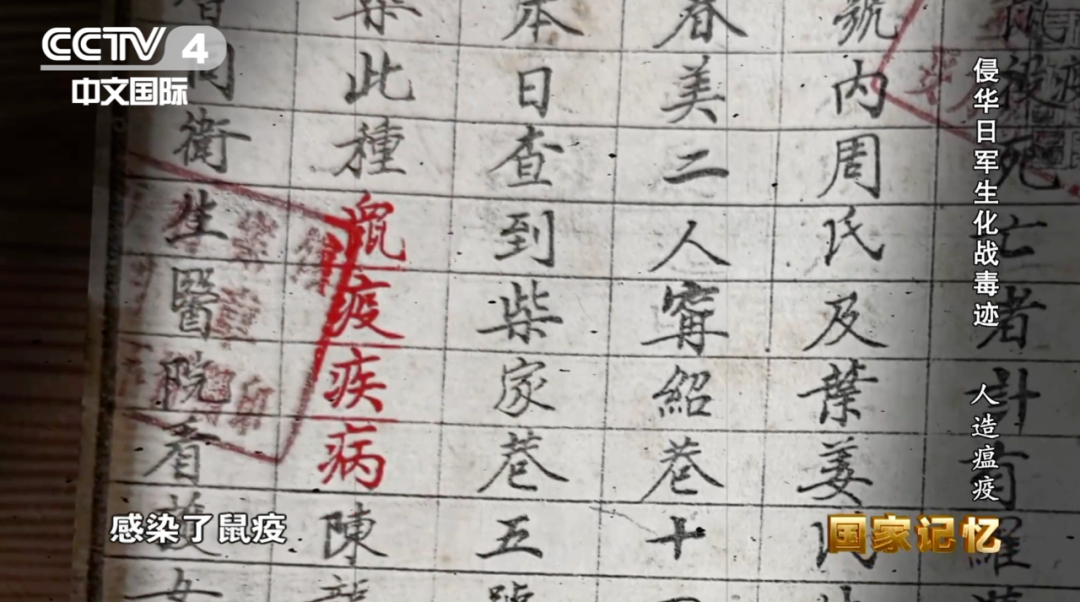 CCTV 4
中文国际
侵华日军生化战毒迹
人造瘟疫
死亡者計有羅
號內周氏及葉姜
春美二人甯紹巷十
本日查到柴家巷五號
染此種鼠疫疾病陳
同衛生醫院看護女
感染了鼠疫
国家记忆